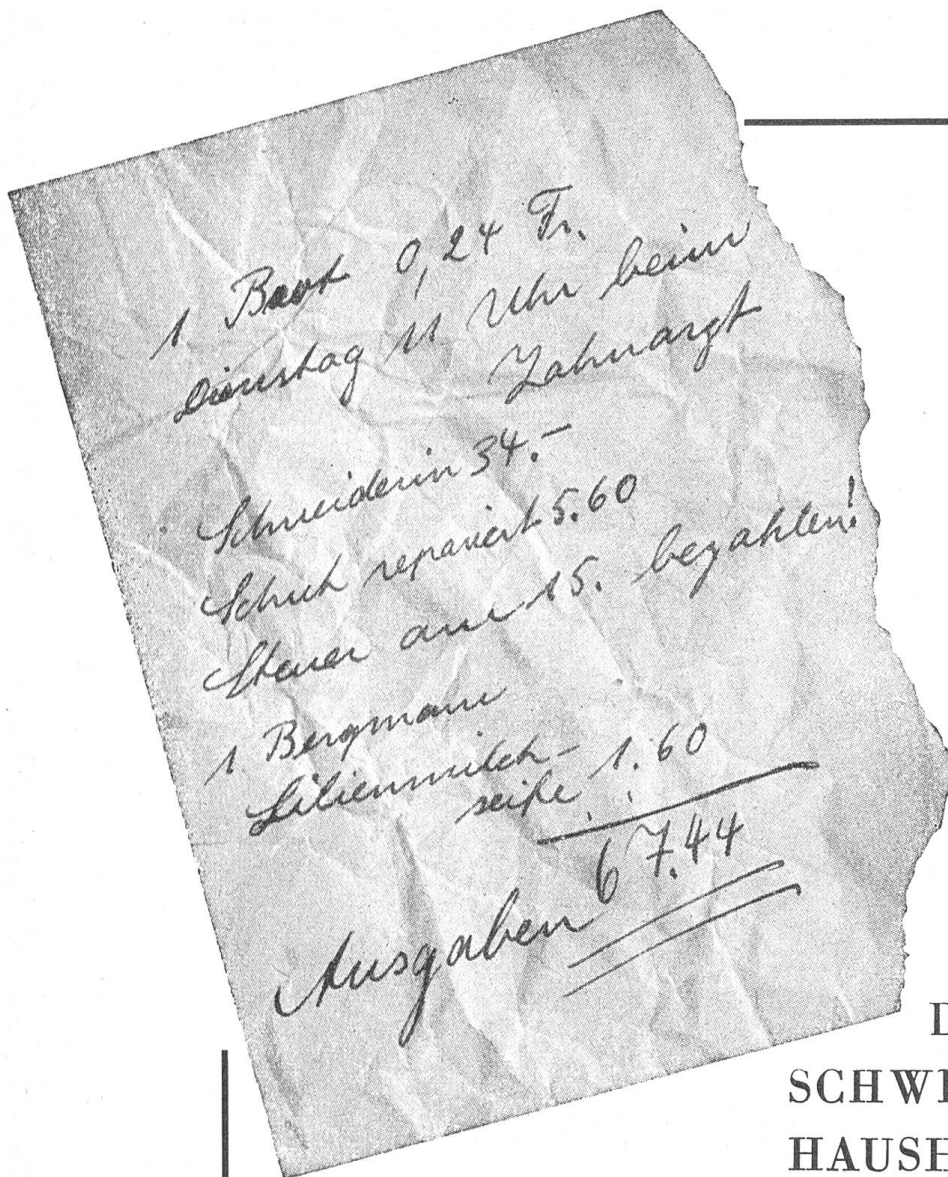 1 Brot 0,24 Fr.
Dienstag 11 Uhr beim
Zahnarzt
Schneiderin 34.–
Schuh repariert 5.60
Steuer am 15. bezahlen!
1 Bergmann
Lilienmilch-
seife 1.60
Ausgaben 67.44
D
SCHWE
HAUSH